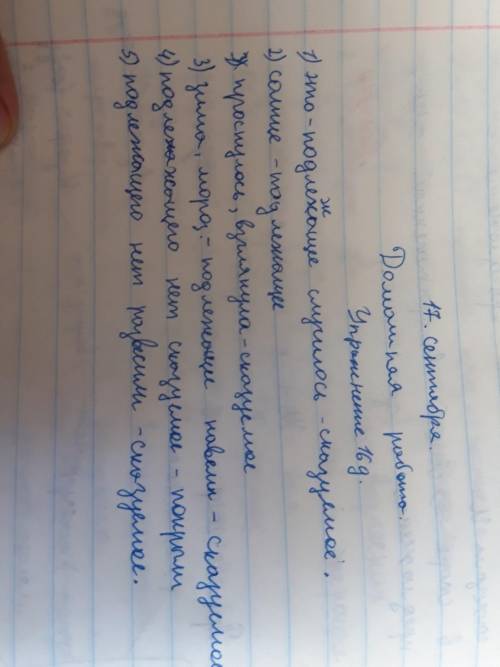 17. сентября.
Домашняя работа.
Упражнение 169.
1) это - подлежащие случилось - сказуемое.
2) солнце - подлежащее
проснулось, взглянула - сказуемое
3) зима, мороз - подлежащие навели - сказуемое
4) подлежажащего нет сказуемое - покрыт
5) подлежащего нет развеши - сказуемое.